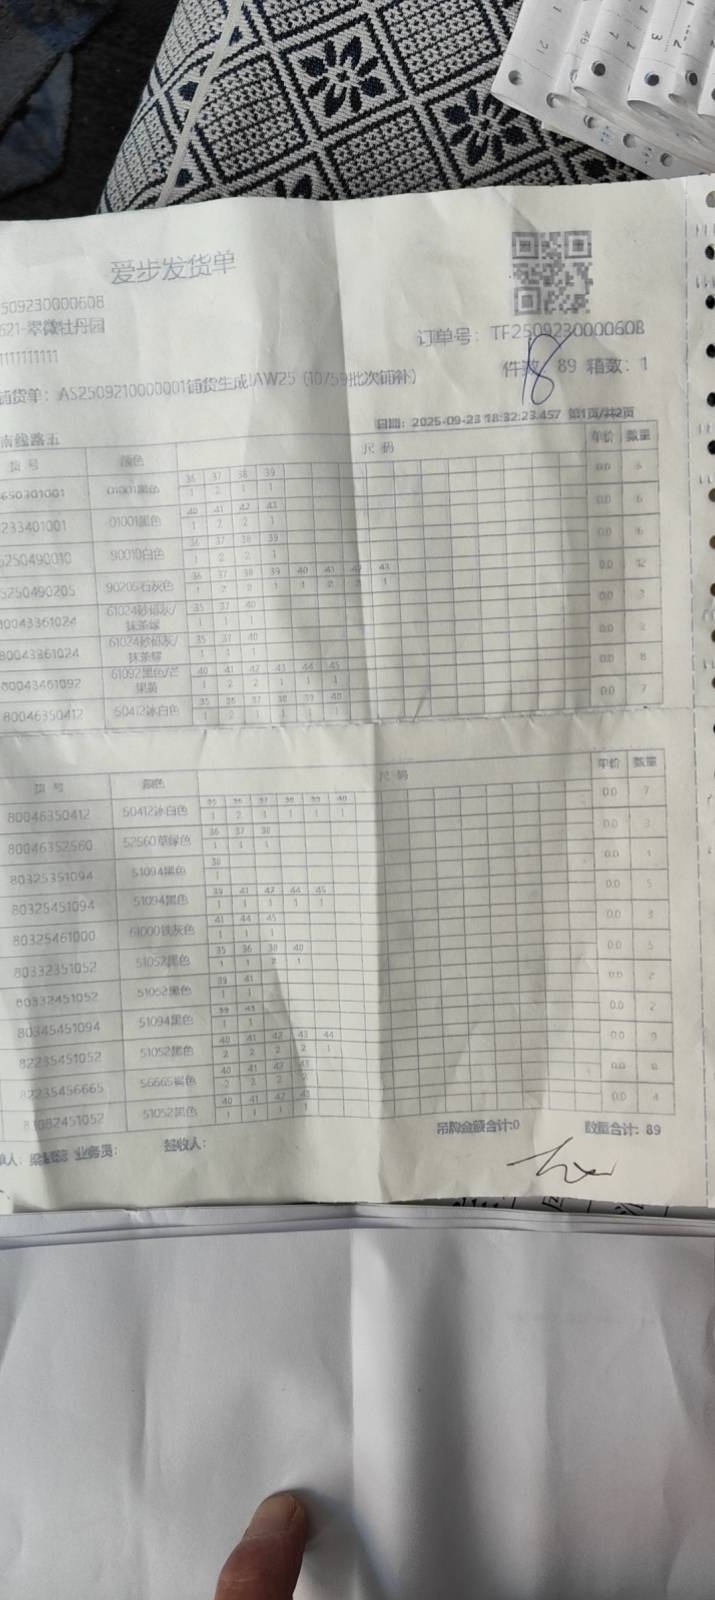 爱步发货单
509230000608
621-翠微牡丹园
订单号: TF2509230000608
1111111111
件数: 89 箱数: 1
18
铺货单: AS2509210000001铺货生成!AW25 (10759批次铺补)
日期: 2025-09-23 18:32:23.457 第1页/共2页
南线路五
货号 颜色 尺码 单价 数量
36 37 38 39
650301001 01001黑色 1 2 1 1 0.0 5
40 41 42 43
233401001 01001黑色 1 2 2 1 0.0 6
36 37 38 39
5250490010 90010白色 1 2 2 1 0.0 6
36 37 38 39 40 41 42 43
5250490205 90205石灰色 1 2 2 1 1 2 2 1 0.0 12
35 37 40
80043361024 61024砂砾灰/抹茶绿 1 1 1 0.0 3
35 37 40
80043361024 61024砂砾灰/抹茶绿 1 1 1 0.0 3
40 41 42 43 44 45
80043461092 61092黑色/芒果黄 1 2 2 1 1 1 0.0 8
35 36 37 38 39 40
80046350412 50412冰白色 1 2 1 1 1 1 0.0 7
货号 颜色 尺码 单价 数量
35 36 37 38 39 40
80046350412 50412冰白色 1 2 1 1 1 1 0.0 7
36 37 38
80046352560 52560草绿色 1 1 1 0.0 3
38
80325351094 51094黑色 1 0.0 1
39 41 42 44 45
80325451094 51094黑色 1 1 1 1 1 0.0 5
41 44 45
80325461000 61000铁灰色 1 1 1 0.0 3
35 36 38 40
80332351052 51052黑色 1 1 2 1 0.0 5
39 41
80332451052 51052黑色 1 1 0.0 2
39 43
80345451094 51094黑色 1 1 0.0 2
40 41 42 43 44
82235451052 51052黑色 2 2 2 2 1 0.0 9
40 41 42 43
82235456665 56665褐色 2 2 2 2 0.0 8
40 41 42 43
83082451052 51052黑色 1 1 1 1 0.0 4
吊牌金额合计:0 数量合计: 89
业务员: 签收人: